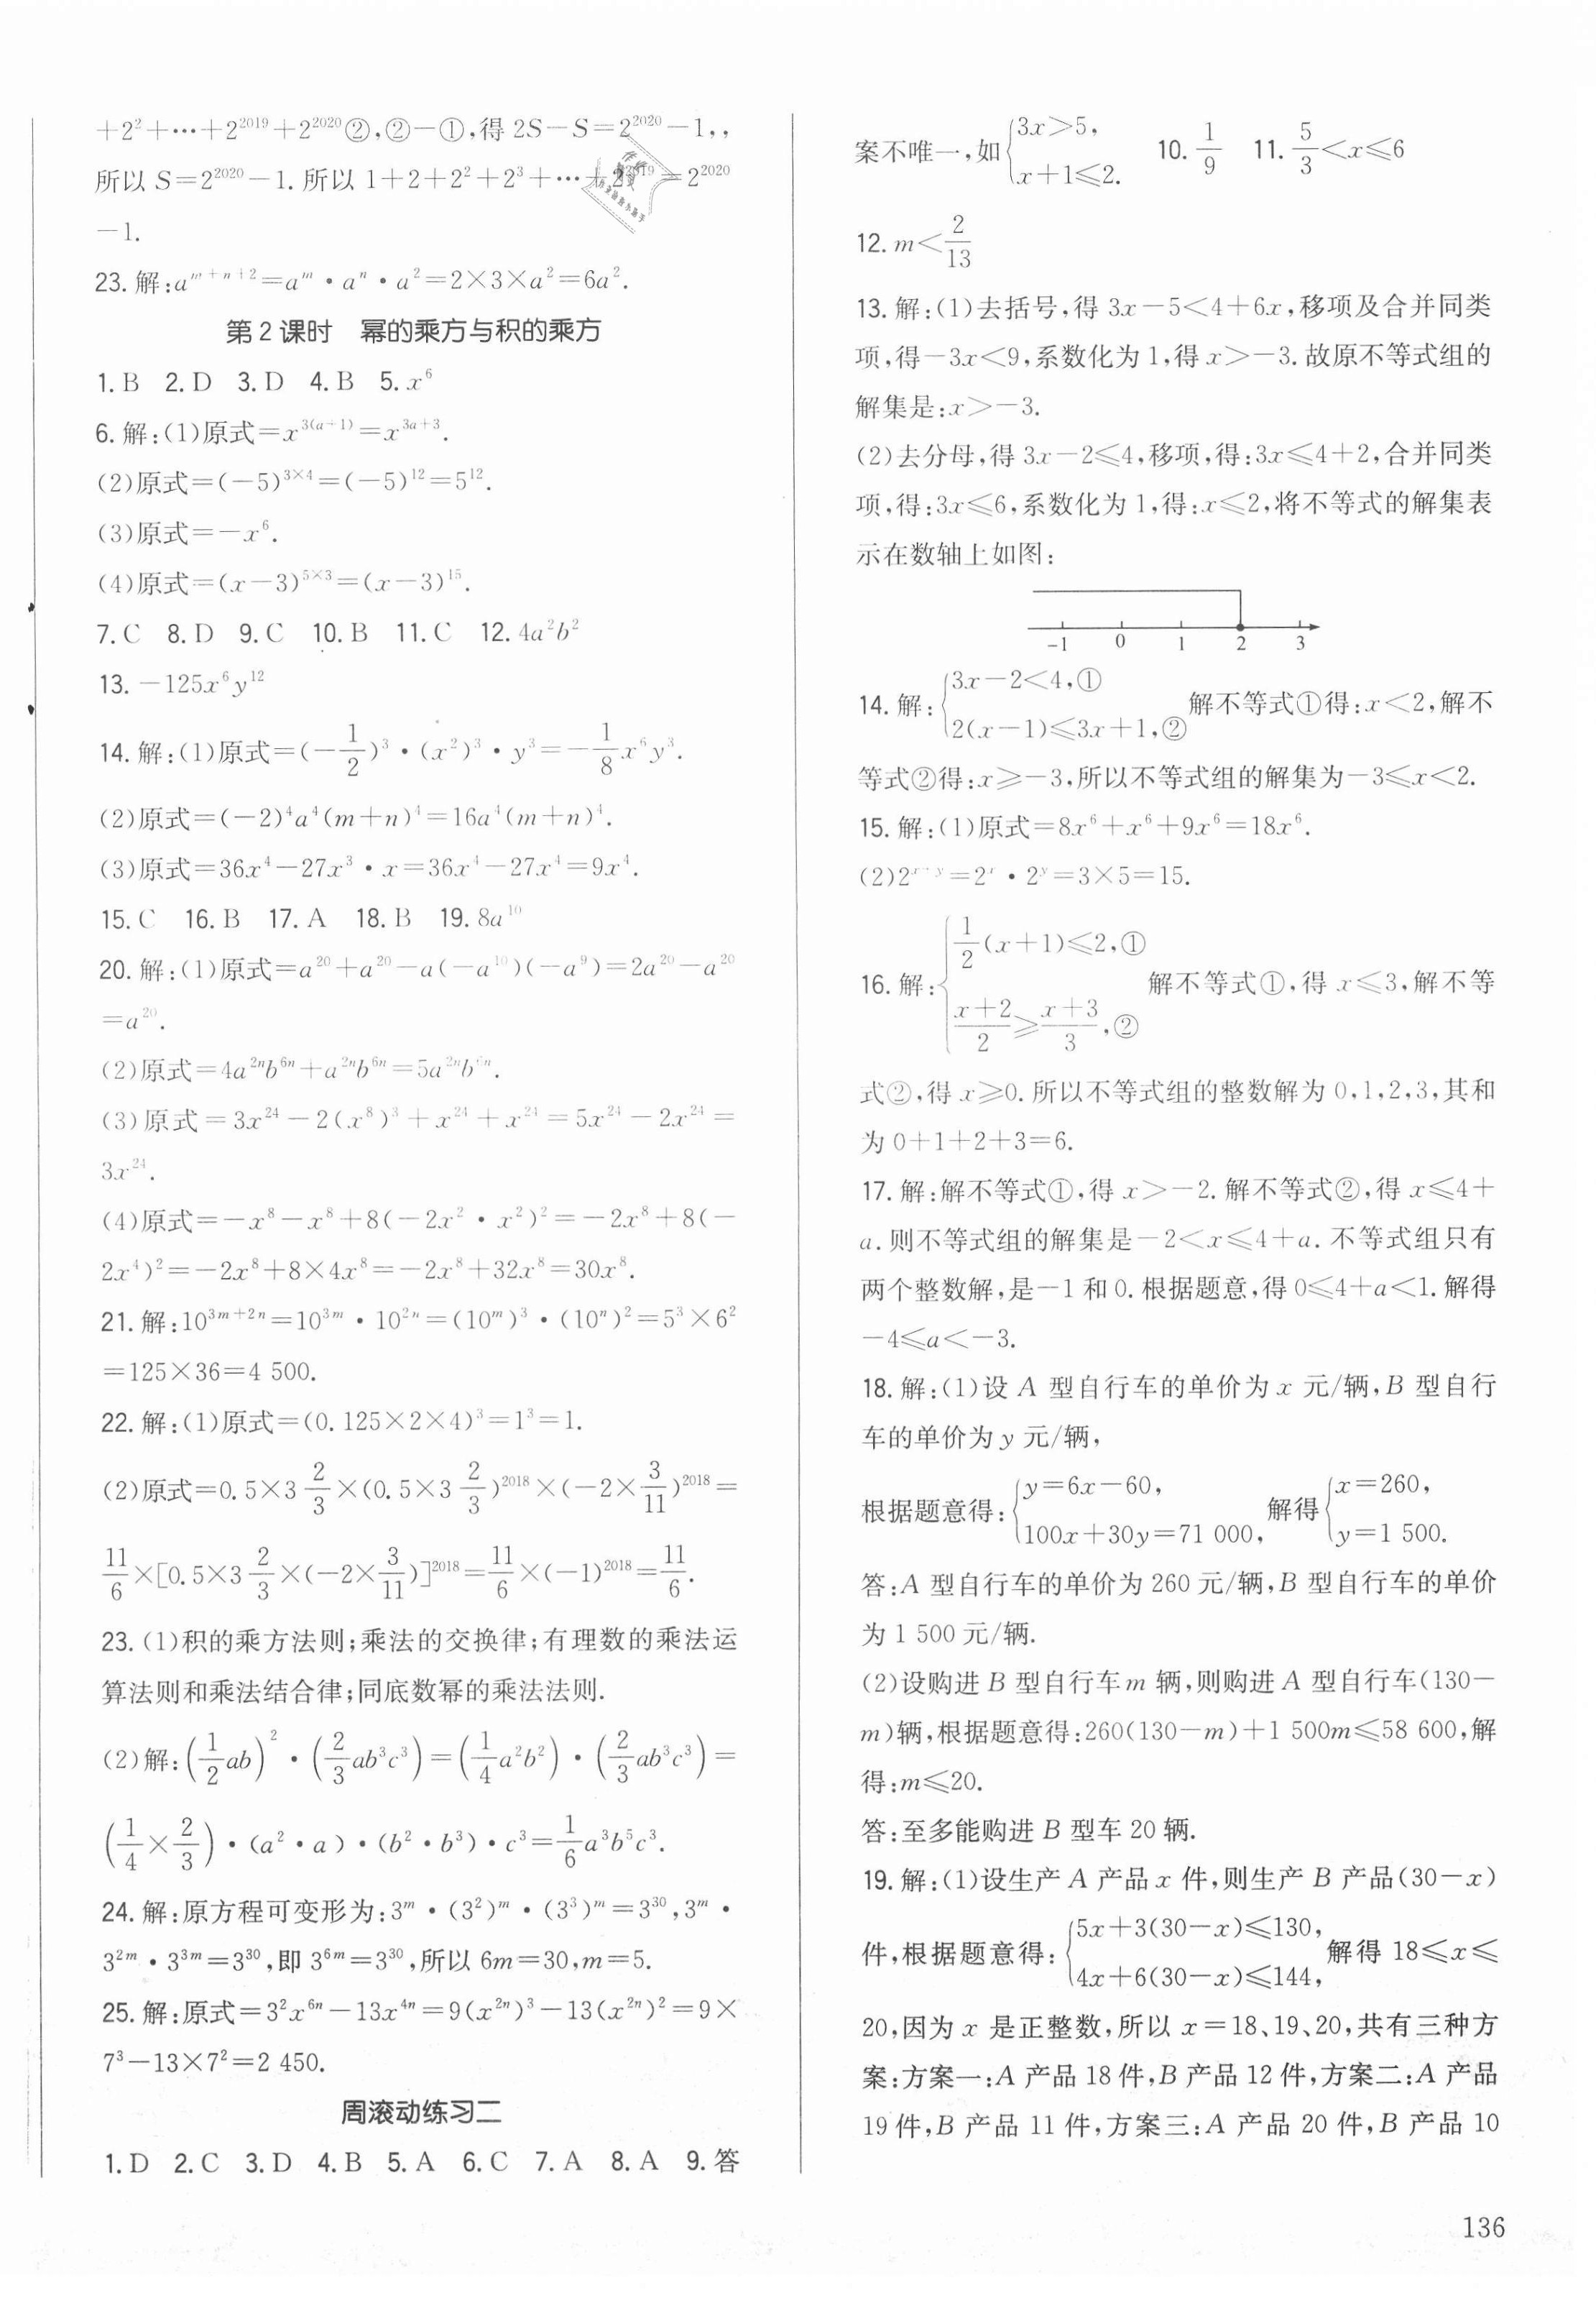 +2²+…+2²⁰¹⁹+2²⁰²⁰②,②-①,得 2S-S=2²⁰²⁰-1,,
所以 S=2²⁰²⁰-1. 所以 1+2+2²+2³+…+2²⁰¹⁹=2²⁰²⁰
-1.
23. 解:aᵐ⁺ⁿ⁺²=aᵐ·aⁿ·a²=2×3×a²=6a².
第 2 课时 幂的乘方与积的乘方
1. B 2. D 3. D 4. B 5. x⁶
6. 解:(1)原式=x^{3(a+1)}=x^{3a+3}.
(2)原式=(-5)^{3×4}=(-5)¹²=5¹².
(3)原式=-x⁶.
(4)原式=(x-3)^{5×3}=(x-3)¹⁵.
7. C 8. D 9. C 10. B 11. C 12. 4a²b²
13. -125x⁶y¹²
14. 解:(1)原式=(-1/2)³·(x²)³·y³=-1/8x⁶y³.
(2)原式=(-2)⁴a⁴(m+n)⁴=16a⁴(m+n)⁴.
(3)原式=36x⁴-27x³·x=36x⁴-27x⁴=9x⁴.
15. C 16. B 17. A 18. B 19. 8a¹⁰
20. 解:(1)原式=a²⁰+a²⁰-a(-a¹⁰)(-a⁹)=2a²⁰-a²⁰
=a²⁰.
(2)原式=4a²ⁿb⁶ⁿ+a²ⁿb⁶ⁿ=5a²ⁿb⁶ⁿ.
(3)原式=3x²⁴-2(x⁸)³+x²⁴+x²⁴=5x²⁴-2x²⁴=
3x²⁴.
(4)原式=-x⁸-x⁸+8(-2x²·x²)²=-2x⁸+8(-
2x⁴)²=-2x⁸+8×4x⁸=-2x⁸+32x⁸=30x⁸.
21. 解:10^{3m+2n}=10^{3m}·10^{2n}=(10ᵐ)³·(10ⁿ)²=5³×6²
=125×36=4 500.
22. 解:(1)原式=(0.125×2×4)³=1³=1.
(2)原式=0.5×3 2/3×(0.5×3 2/3)²⁰¹⁸×(-2×3/11)²⁰¹⁸=
11/6×[0.5×3 2/3×(-2×3/11)]²⁰¹⁸=11/6×(-1)²⁰¹⁸=11/6.
23. (1)积的乘方法则;乘法的交换律;有理数的乘法运
算法则和乘法结合律;同底数幂的乘法法则.
(2)解:(1/2ab)²·(2/3ab³c³)=(1/4a²b²)·(2/3ab³c³)=
(1/4×2/3)·(a²·a)·(b²·b³)·c³=1/6a³b⁵c³.
24. 解:原方程可变形为:3ᵐ·(3²)ᵐ·(3³)ᵐ=3³⁰,3ᵐ·
3²ᵐ·3³ᵐ=3³⁰,即 3⁶ᵐ=3³⁰,所以 6m=30,m=5.
25. 解:原式=3²x⁶ⁿ-13x⁴ⁿ=9(x²ⁿ)³-13(x²ⁿ)²=9×
7³-13×7²=2 450.
周滚动练习二
1. D 2. C 3. D 4. B 5. A 6. C 7. A 8. A 9. 答
案不唯一,如{3x>5, x+1≤2. 10. 1/9 11. 5/3<x≤6
12. m<2/13
13. 解:(1)去括号,得 3x-5<4+6x,移项及合并同类
项,得-3x<9,系数化为 1,得 x>-3. 故原不等式组的
解集是:x>-3.
(2)去分母,得 3x-2≤4,移项,得:3x≤4+2,合并同类
项,得:3x≤6,系数化为 1,得:x≤2,将不等式的解集表
示在数轴上如图:
-1 0 1 2 3
14. 解:{3x-2<4,① 2(x-1)≤3x+1,② 解不等式①得:x<2,解不
等式②得:x≥-3,所以不等式组的解集为-3≤x<2.
15. 解:(1)原式=8x⁶+x⁶+9x⁶=18x⁶.
(2)2ˣ⁺ʸ=2ˣ·2ʸ=3×5=15.
16. 解:{1/2(x+1)≤2,① (x+2)/2≥(x+3)/3,② 解不等式①,得 x≤3,解不等
式②,得 x≥0. 所以不等式组的整数解为 0,1,2,3,其和
为 0+1+2+3=6.
17. 解:解不等式①,得 x>-2. 解不等式②,得 x≤4+
a. 则不等式组的解集是-2<x≤4+a. 不等式组只有
两个整数解,是-1 和 0. 根据题意,得 0≤4+a<1. 解得
-4≤a<-3.
18. 解:(1)设 A 型自行车的单价为 x 元/辆,B 型自行
车的单价为 y 元/辆,
根据题意得:{y=6x-60, 100x+30y=71 000, 解得{x=260, y=1 500.
答:A 型自行车的单价为 260 元/辆,B 型自行车的单价
为 1 500 元/辆.
(2)设购进 B 型自行车 m 辆,则购进 A 型自行车(130-
m)辆,根据题意得:260(130-m)+1 500m≤58 600,解
得:m≤20.
答:至多能购进 B 型车 20 辆.
19. 解:(1)设生产 A 产品 x 件,则生产 B 产品(30-x)
件,根据题意得:{5x+3(30-x)≤130, 4x+6(30-x)≤144, 解得 18≤x≤
20,因为 x 是正整数,所以 x=18、19、20,共有三种方
案:方案一:A 产品 18 件,B 产品 12 件,方案二:A 产品
19 件,B 产品 11 件,方案三:A 产品 20 件,B 产品 10
136